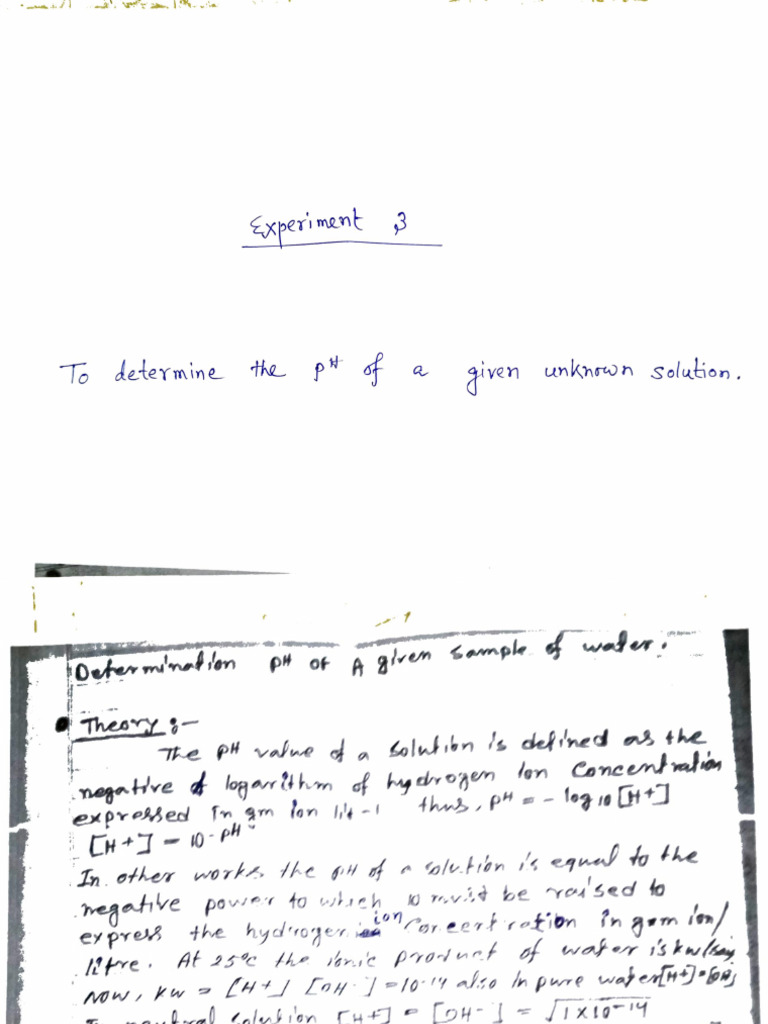 Experiment 3
To determine the pH of a given unknown solution.
Determination pH of A given sample of water.
Theory :-
The pH value of a solution is defined as the
negative of logarithm of hydrogen Ion Concentration
expressed In gm Ion lit-1 thus, pH = - log10 [H+]
[H+] = 10-pH
In other works the pH of a solution is equal to the
negative power to which 10 must be raised to
express the hydrogen ion Concentration in gom ion/
litre. At 25°c the ionic product of water is kw
Now, kw = [H+] [OH-] = 10-14 also In pure water [H+] = [OH]
neutral solution [H+] = [OH-] = √1X10-14